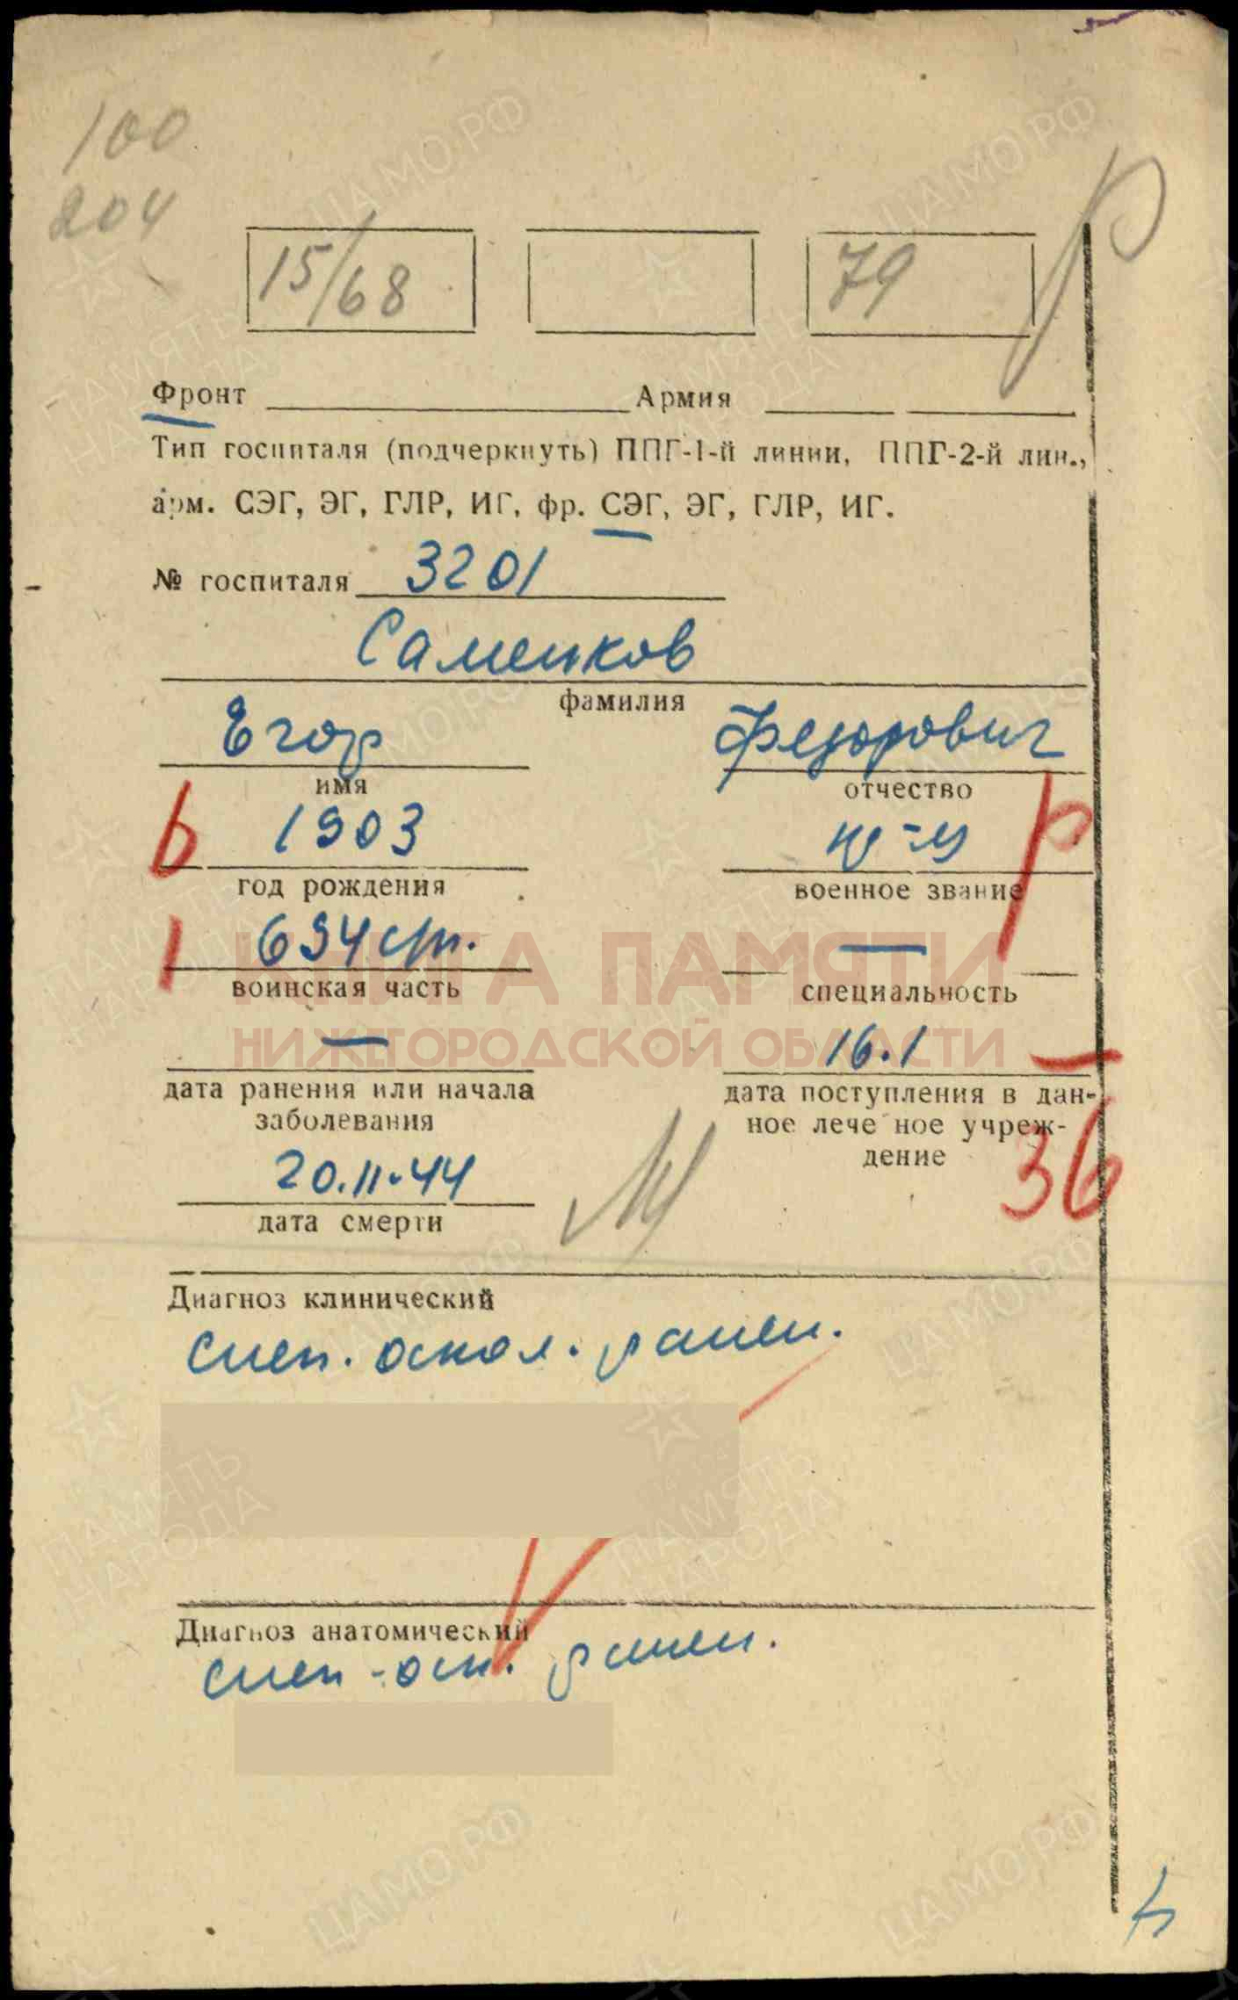 100
204
15/68
79
р
Фронт Армия
Тип госпиталя (подчеркнуть) ППГ-1-й линии, ППГ-2-й лин.,
арм. СЭГ, ЭГ, ГЛР, ИГ, фр. СЭГ, ЭГ, ГЛР, ИГ.
№ госпиталя 3201
Саменков
фамилия
Егор Федорович
имя отчество
6 1903 р
год рождения военное звание
1 694 сп. —
воинская часть специальность
КНИГА ПАМЯТИ
НИЖЕГОРОДСКОЙ ОБЛАСТИ
— 16.1
дата ранения или начала
заболевания
дата поступления в дан-
ное лече ное учреж-
дение
36
20.11.44
дата смерти
Диагноз клинический
слеп. оскол. ранен.
Диагноз анатомический
слеп - оск. ранен.
ЦАМО.РФ
ПАМЯТЬ
НАРОДА